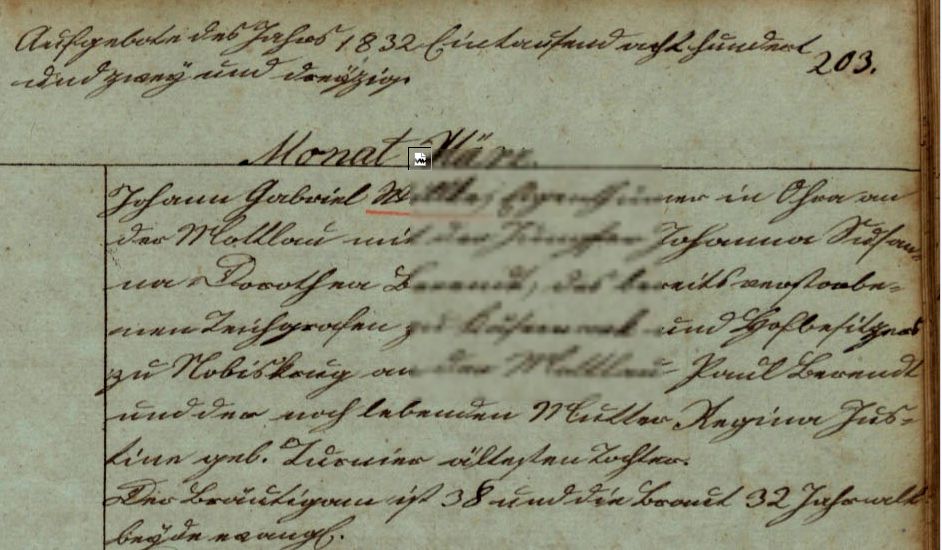 Aufgebote des Jahrs 1832 Eintausend acht hundert
203.
und zwey und dreyzig.
Monat März.
Johann Gabriel in Ohra an
der Mottlau mit der Jungfer Johanna Susan-
na Dorothea Berendt, des bereits verstorbe-
nen Teichgrafen zu und Hofbesitzers
zu Nobiskrug an der Mottlau Paul Berendt
und der noch lebenden Mutter Regina Jus-
tine geb. Turnier ältesten Tochter.
Der Bräutigam ist 38 und die Braut 32 Jahr alt
beyde evangl.